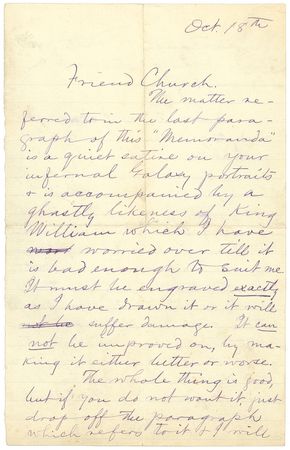 Oct. 18th
Friend Church.
The matter re-
ferred to in the last para-
graph of this "Memoranda"
is a quiet satire on your
infernal Galaxy portraits
& is accompanied by a
ghastly likeness of King
William which I have
worried over till it
is bad enough to suit me.
It must be engraved exactly
as I have drawn it or it will
suffer damage. It can
not be improved on, by ma-
king it either better or worse.
The whole thing is good,
but if you do not want it, just
drop off the paragraph
which refers to it & I will